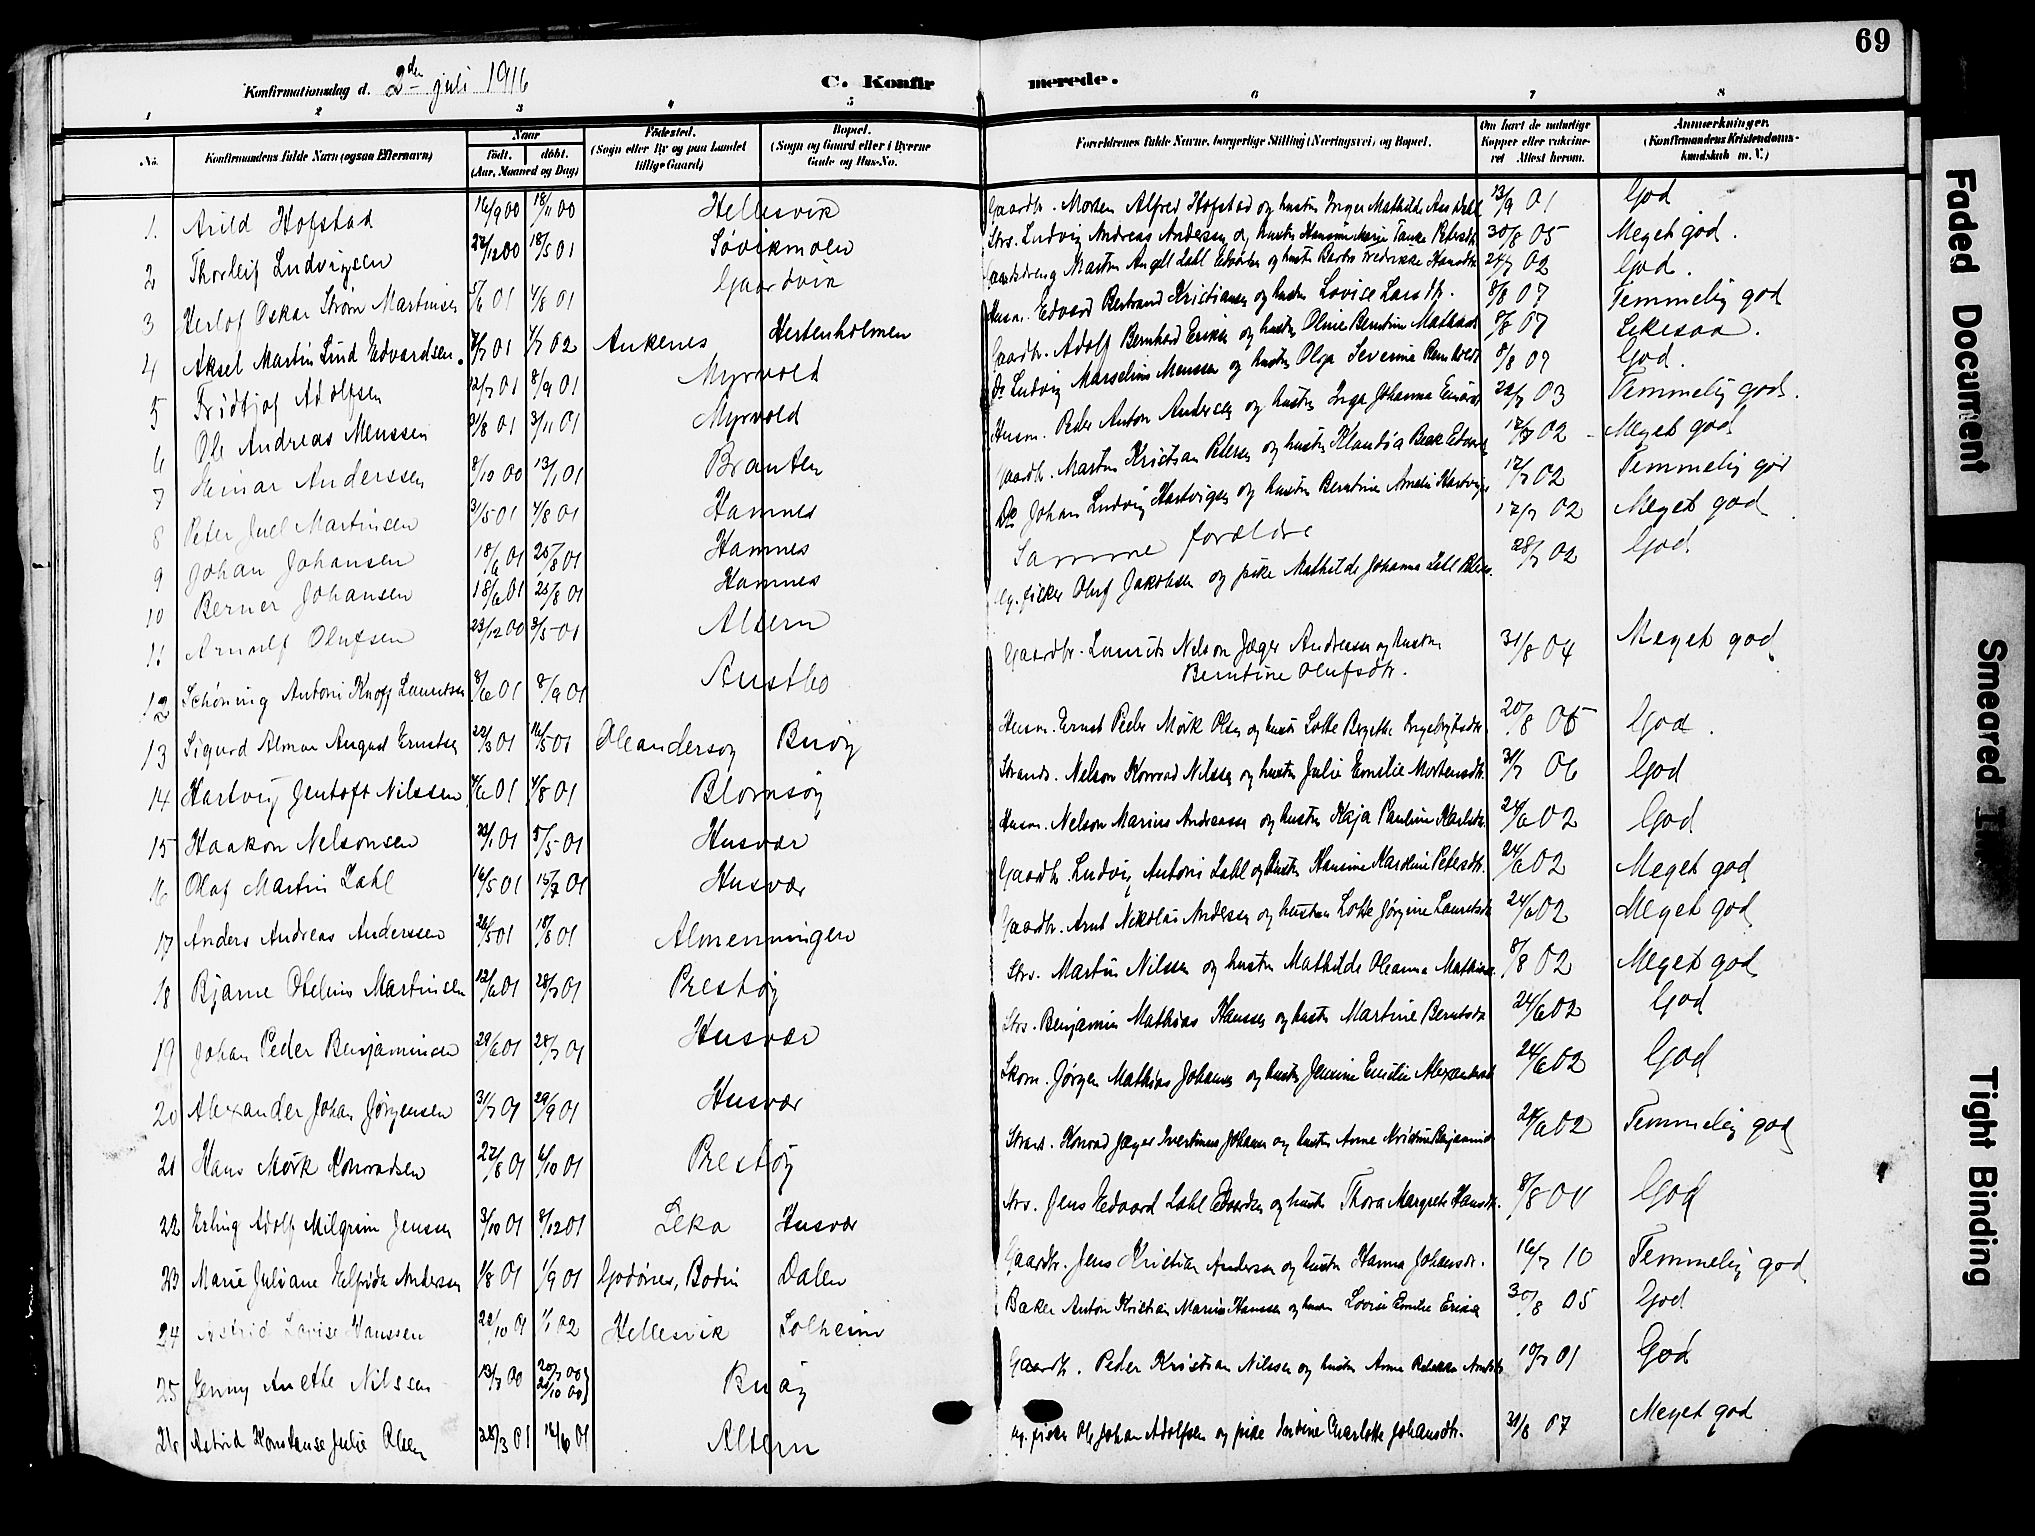 69
Konfirmationsdag d. 2den juli 1916 C. Konfirmerede.
1 2 3 4 5 6 7 8
No. Konfirmandens fulde Navn (ogsaa Efternavn) Naar født. døbt. (Aar, Maaned og Dag) Fødested. (Sogn eller By og paa Landet tillige Gaard) Bopæl. (Sogn og Gaard eller i Byerne Gade og Hus-No. Forældrenes fulde Navne, borgerlige Stilling (Næringsvei) og Bopæl. Om havt de naturlige Kopper eller vakcineret Attest herom. Anmærkninger. (Konfirmandens Kristendomskundskab m. V.)
1. Arild Hofstad 16/9 00 18/11 00 Hellesvik Gaardbr. Morten Alfred Hofstad og hustru Inger Mathilde 13/9 01 God
2 Thorleif Ludvigsen 18/5 01 Søvikmoen Strs. Ludvig Andreas Andersen og hustru 30/8 05 Meget god.
3 Herlof Oskar Strøm Martinsen 5/6 01 4/8 01 Gaardvik 24/7 02 God.
4 Aksel Martin Lind Edvardsen. 4/7 02 Ankenes Hestenholmen Husm. Edvard Bertrand Kristiansen og hustru Lovise Larsdtr. 8/8 07 Temmelig god
5 Fridtjof Adolfsen 12/7 01 8/9 01 Myrvold Gaardbr. Adolf Bernhard Eriksen og hustru Oline Berntine 8/8 07
6 Ole Andreas Menssen 31/8 01 3/11 01 Myrvold Do Ludvig Marselius Menssen og hustru Olga Severine 8/8 07 God.
7 Anderssen 8/10 00 13/1 01 Branten Husm. Peder Anton Andersen og hustru Inga Johanna 03 Temmelig god.
8 Peter Juel Martinsen 31/5 01 4/8 01 Hamnes Gaardbr. Martin Kristian Petersen og hustru 17/7 02 Meget god
9 Johan Johansen 18/6 01 25/8 01 Hamnes Do Johan Ludvig Hartvigsen og hustru Berntine Amalie 17/7 02 Temmelig god
10 Berner Johansen 18/6 01 25/8 01 Hamnes Samme forældre 17/7 02 Meget god
11 Arnulf Olufsen 23/12 00 3/5 01 Altern Ug. fisker Oluf Jakobsen og pike Mathilde Johanna 28/7 02 God
12 Schøning Antoni Knoff Lauritsen 8/6 01 8/9 01 Austbo Gaardbr. Laurits Nilson Jæger Andreassen og hustru Berntine Olufsdtr. 31/8 04 Meget god
13 Sigurd Almar August Ernstsen 22/3 01 16/5 01 Oleandersøy Buøy Husm. Ernst Peder Mørk Olsen og hustru Lotte Bergette 20/8 05 God.
14 Hartvig Jentoft Nilssen 4/6 01 4/8 01 Blomsøy Strands. Nelson Konrad Nilssen og hustru Julie Emelie Mortensdtr. 31/7 06 God
15 Haakon Nelsonsen 5/5 01 Husvær Husm. Nelson Marius Andreassen og hustru Kaja Pauline 24/6 02 God
16 Olaf Martin Zahl 16/5 01 15/7 01 Husvær Gaardbr. Ludvig Antoni Zahl og hustru Hansine Karoline Petersdtr. 24/6 02 Meget god
17 Anders Andreas Anderssen 26/5 01 18/8 01 Almenningen Gaardbr. Arnt Nikolai Andersen og hustru Lotte Jørgine Lauritsdtr. 24/6 02 Meget god
18 Bjarne Otelius Martinsen 12/6 01 28/7 01 Prestøy Strs. Martin Nilssen og hustru Mathilde Oleanna 8/8 02 Meget god
19 Johan Peder Benjaminsen 29/6 01 28/7 01 Husvær Strs. Benjamin Mathias Hanssen og hustru Martine Berntsdtr. 24/6 02 God
20 Alexander Johan Jørgensen 31/7 01 29/9 01 Husvær Skom. Jørgen Mathias Johansen og hustru Jensine Emilie 24/6 02 God
21 Hans Mørk Konradsen 27/8 01 6/10 01 Prestøy Strand. Konrad Jæger Johansen og hustru Anne Kristine 24/6 02 Temmelig god
22 Erling Adolf Milgrim Jenssen 3/10 01 8/12 01 Leka Husvær Strs. Jens Edvard Zahl Edvardsen og hustru Thora Margrete Hansdtr. 8/8 God
23 Marie Juliane Elfrida Andersen 1/8 01 1/9 01 Godønes, Bodin Dalen Gaardbr. Jens Kristian Andersen og hustru Hanna Johansdtr. 16/7 10 Temmelig god
24 Astrid Lovise Hanssen 22/10 01 1/1 02 Hellesvik Solheim Baker Anton Kristian Marius Hanssen og hustru Lovise Emilie 30/8 05 God
25 Jenny Anette Nilssen 13/7 00 20/7 00 Buøy Gaardbr. Peder Kristian Nilssen og hustru Anne Rebekka 10/7 01 God
26 Astrid Konstanse Julie Olsen 28/3 01 16/6 01 Altern Ug. fisker Ole Johan Adolfsen og pike Charlotte Johansdtr. 31/8 07 Meget god
Faded Document
Smeared Ink
Tight Binding